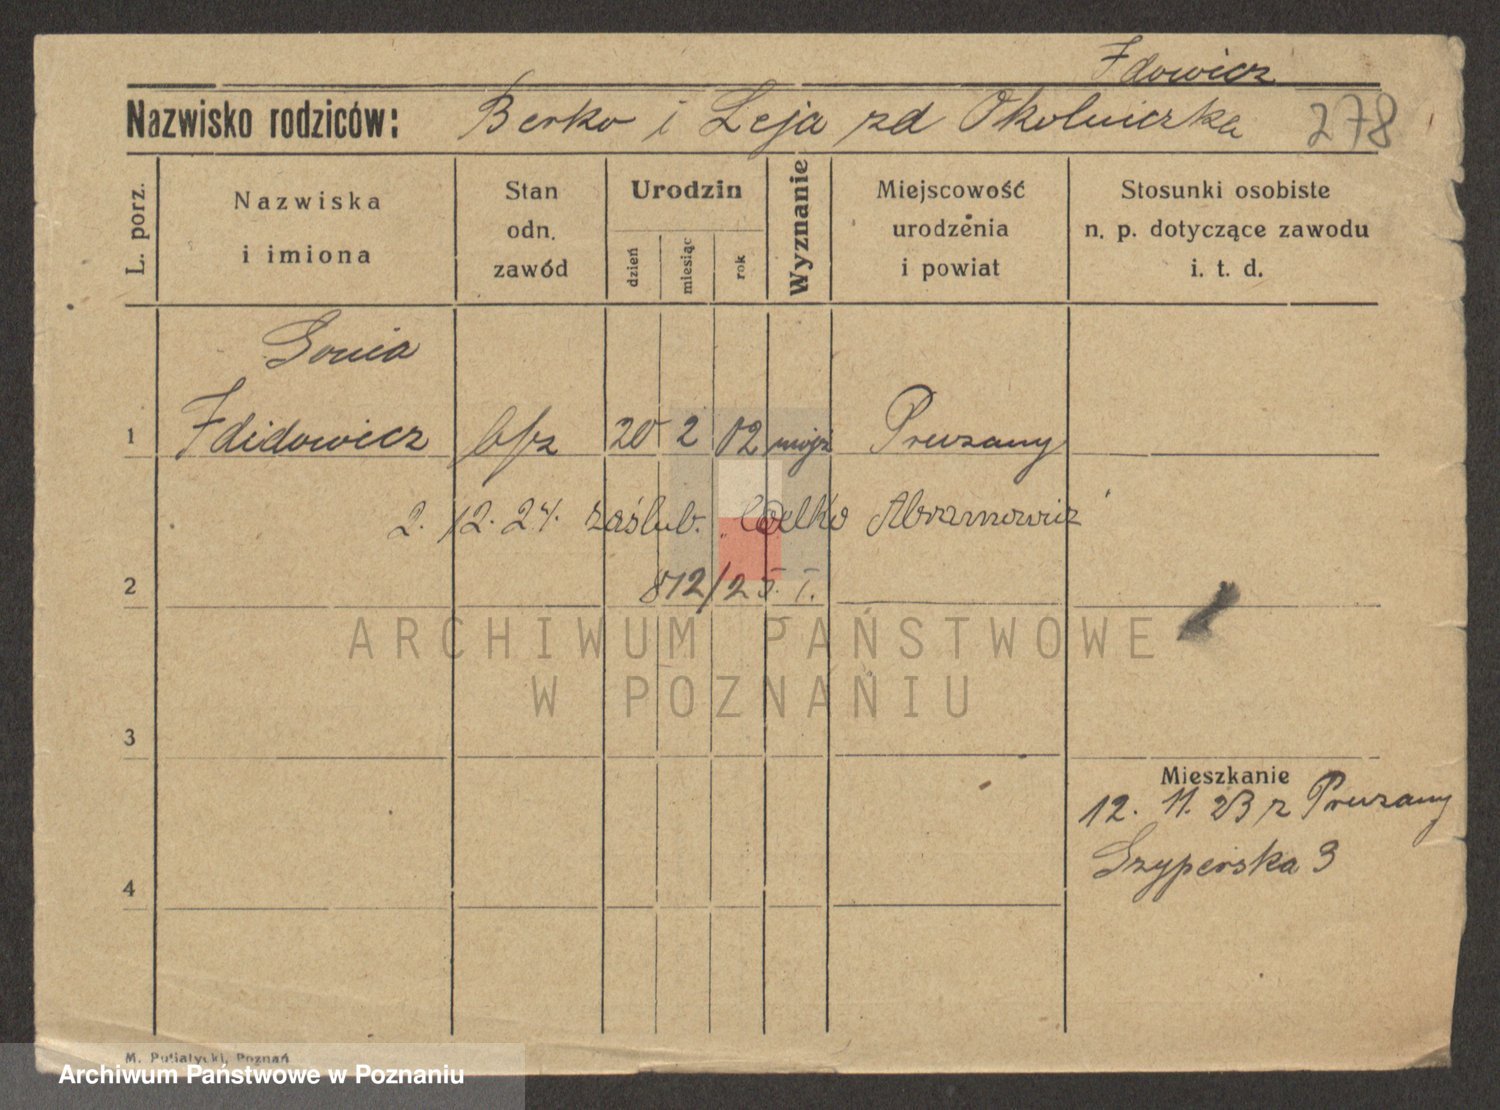 Idowicz
Nazwisko rodziców: Berko i Leja zd Okolniczka 278
L. porz.
Nazwiska
i imiona
Stan
odn.
zawód
Urodzin
dzień
miesiąc
rok
Wyznanie
Miejscowość
urodzenia
i powiat
Stosunki osobiste
n. p. dotyczące zawodu
i. t. d.
Sonia
1 Ididowicz b/z 20 2 02 mojż Pruzany
2. 12. 24. zaślub. Abramowicz
2 812/25. I.
ARCHIWUM PAŃSTWOWE
W POZNANIU
3
Mieszkanie
12. 11. 23 z Pruzany
Szyperska 3
4
M. Putiatycki, Poznań
Archiwum Państwowe w Poznaniu